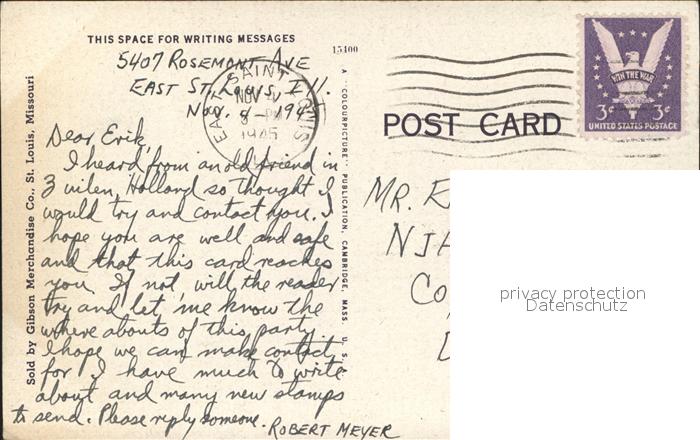 THIS SPACE FOR WRITING MESSAGES
15400
5407 ROSEMONT AVE
EAST ST. LOUIS, Ill.
Nov. 8 - 1945
Dear Erik,
I heard from an old friend in
Zuilen, Holland so thought I
would try and contact you. I
hope you are well and safe
and that this card reaches
you. If not, will the reader
try and let me know the
where abouts of this party.
I hope we can make contact,
for I have much to write
about and many new stamps
to send. Please reply someone.
ROBERT MEYER
Sold by Gibson Merchandise Co., St. Louis, Missouri
A "COLOURPICTURE" PUBLICATION, CAMBRIDGE, MASS. U. S.
EAST SAINT LOUIS
NOV
PM
1945
POST CARD
WIN THE WAR
3¢ 3¢
UNITED STATES POSTAGE
MR. E
NJA
CO
privacy protection
Datenschutz